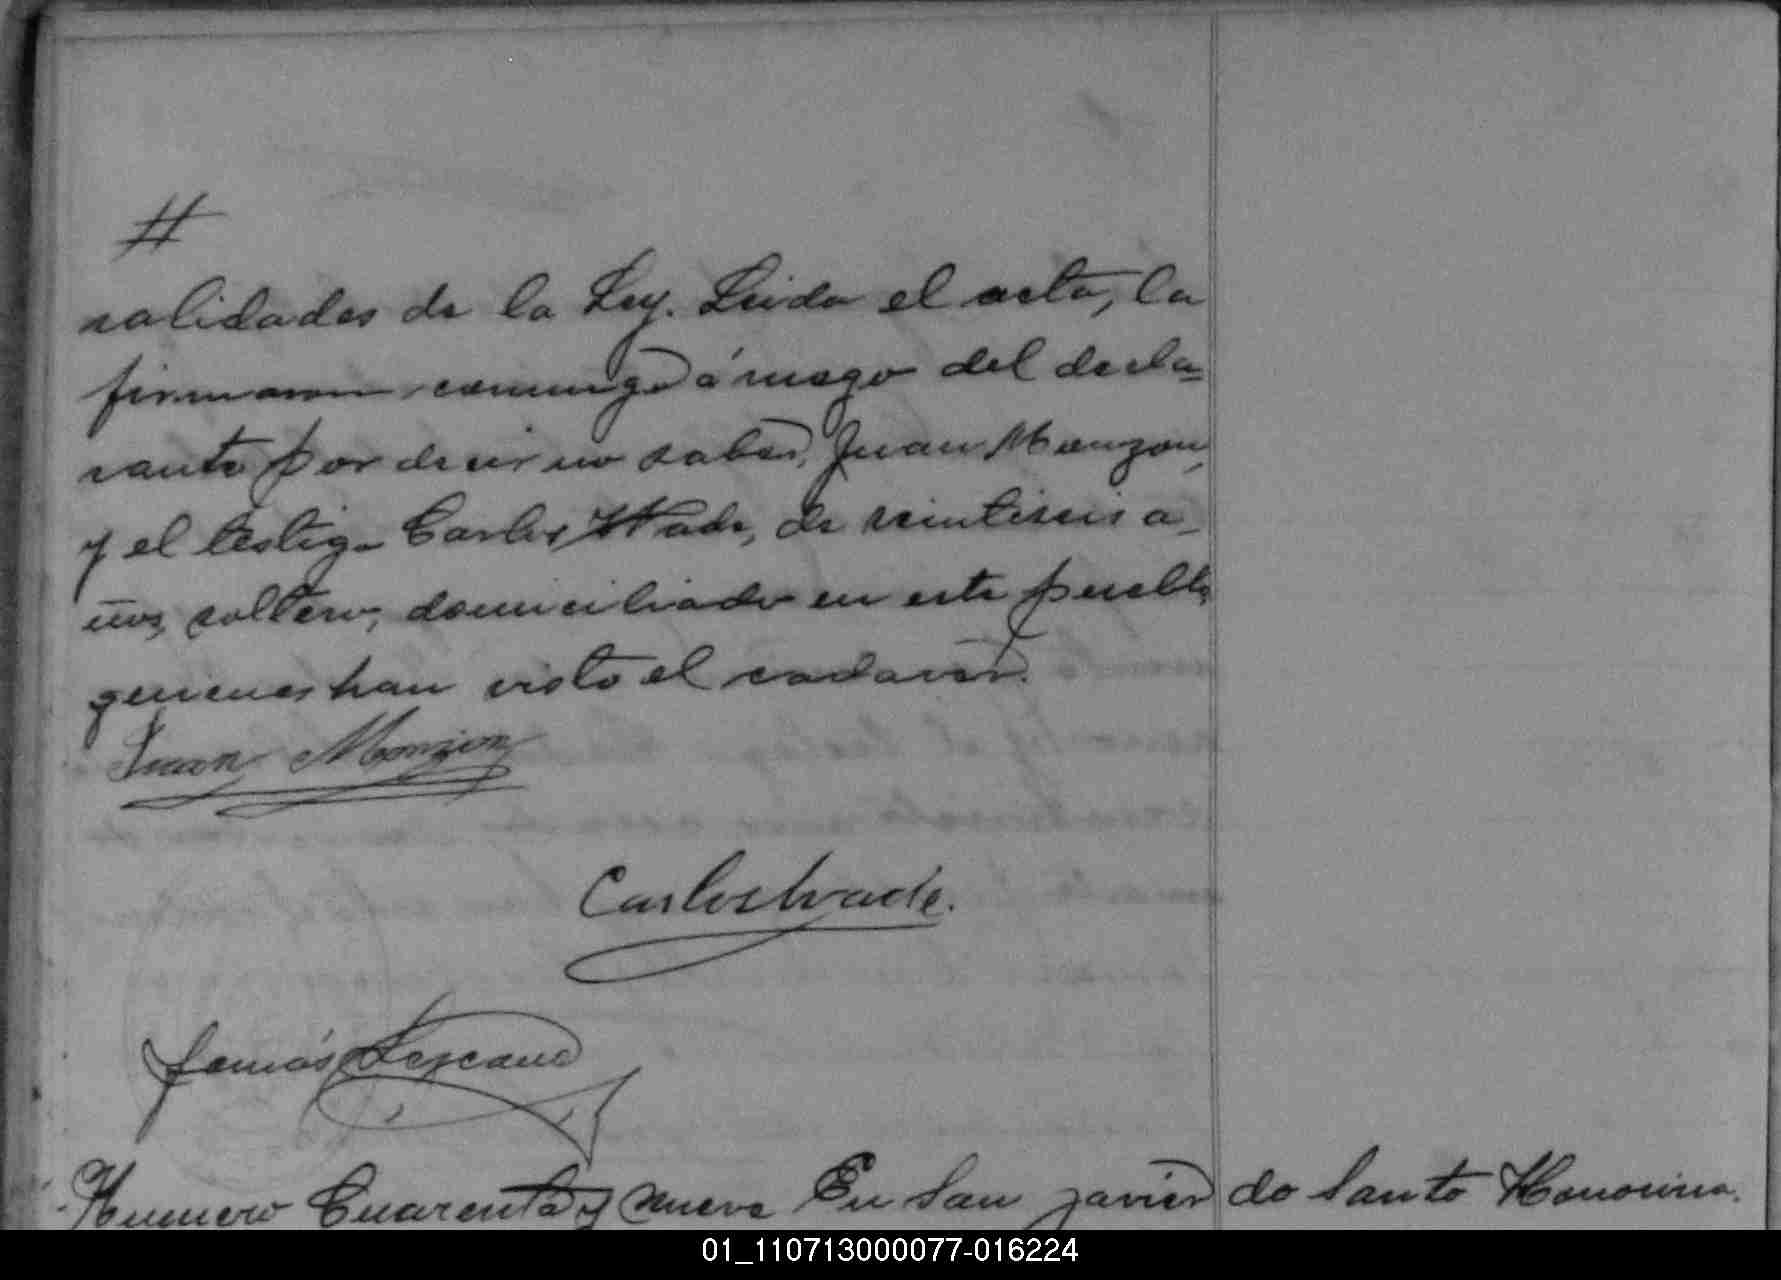 #
malidades de la Ley. Leida el acta, la
firmaron conmigo á ruego del decla-
rante por decir no saber, Juan Monzon,
y el testigo Carlos Wade, de veintiseis a-
ños, soltero, domiciliado en este pueblo,
quienes han visto el cadaver.
Juan Monzon
Carlos Wade.
Tomás Lezcano
Numero Cuarenta y nueve En San Javier do Santo Honorino.
01_110713000077-016224